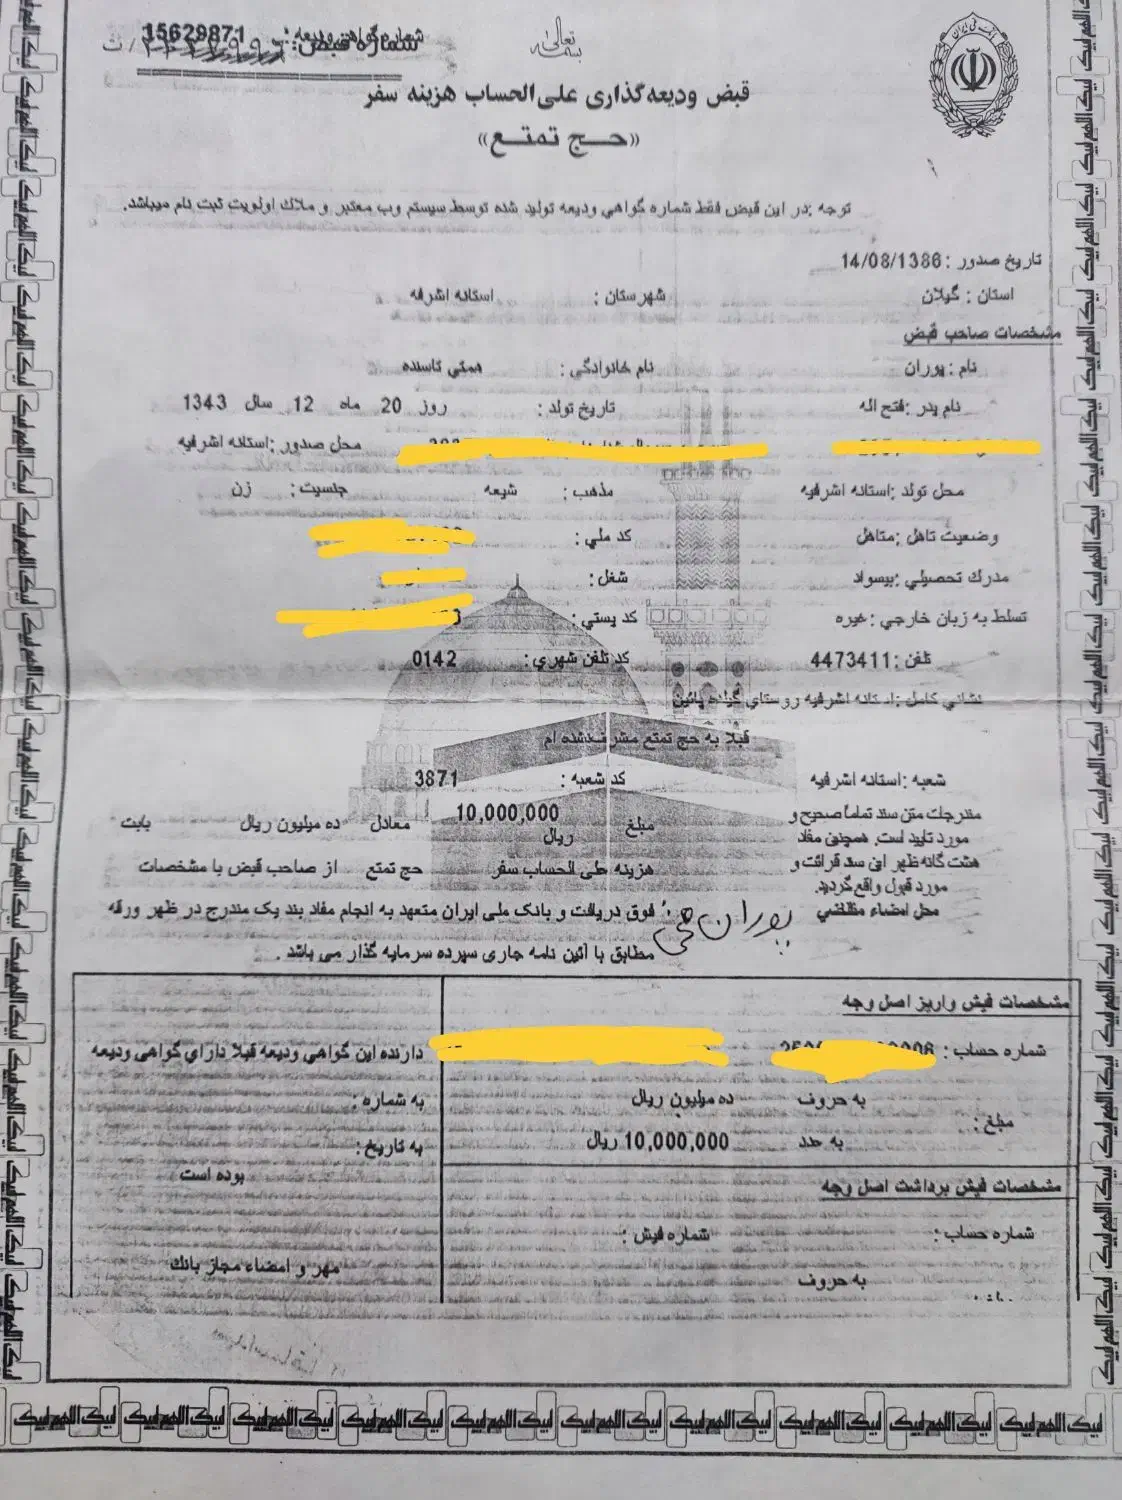 بسمه تعالی
شماره گواهی ودیعه: 15629871
شماره قبض:
قبض ودیعه‌گذاری علی‌الحساب هزینه سفر
«حج تمتع»
توجه :در این قبض فقط شماره گواهي ودیعه تولید شده توسط سیستم وب معتبر و ملاك اولویت ثبت نام میباشد.
تاریخ صدور : 14/08/1386
استان : گیلان شهرستان : استانه اشرفه
مشخصات صاحب قبض
نام : پوران نام خانوادگي : همتي تاسنده
نام پدر : فتح اله تاریخ تولد : روز 20 ماه 12 سال 1343
محل صدور :استانه اشرفیه
محل تولد :استانه اشرفیه مذهب : شیعه جنسیت : زن
وضعیت تاهل :متاهل کد ملي :
مدرك تحصیلي :بیسواد شغل :
تسلط به زبان خارجي : غیره کد پستي :
تلفن : 4473411 کد تلفن شهري : 0142
نشاني کامل :استانه اشرفیه روستاي پائین
قبلا به حج تمتع مشرف نشده ام
شعبه :استانه اشرفیه کد شعبه : 3871
مندرجات متن سند تماماً صحیح و
مورد تایید است. همچنین مفاد
هشت گانه ظهر این سند قرائت و
مورد قبول واقع گردید.
محل امضاء متقاضي
پوران همتی
مبلغ 10,000,000 ریال معادل ده میلیون ریال بابت
هزینه علی الحساب سفر حج تمتع از صاحب قبض با مشخصات
فوق دریافت و بانک ملی ایران متعهد به انجام مفاد بند یک مندرج در ظهر ورقه
مطابق با آئین نامه جاری سپرده سرمایه گذار می باشد .
مشخصات فیش واریز اصل وجه
شماره حساب :
دارنده این گواهي ودیعه قبلا داراي گواهي ودیعه
به حروف ده میلیون ریال
به شماره :
مبلغ :
به عدد 10,000,000 ریال
به تاریخ :
بوده است
مشخصات فیش برداشت اصل وجه
شماره حساب : شماره فیش :
مهر و امضاء مجاز بانك
به حروف
لبیک اللهم لبیک